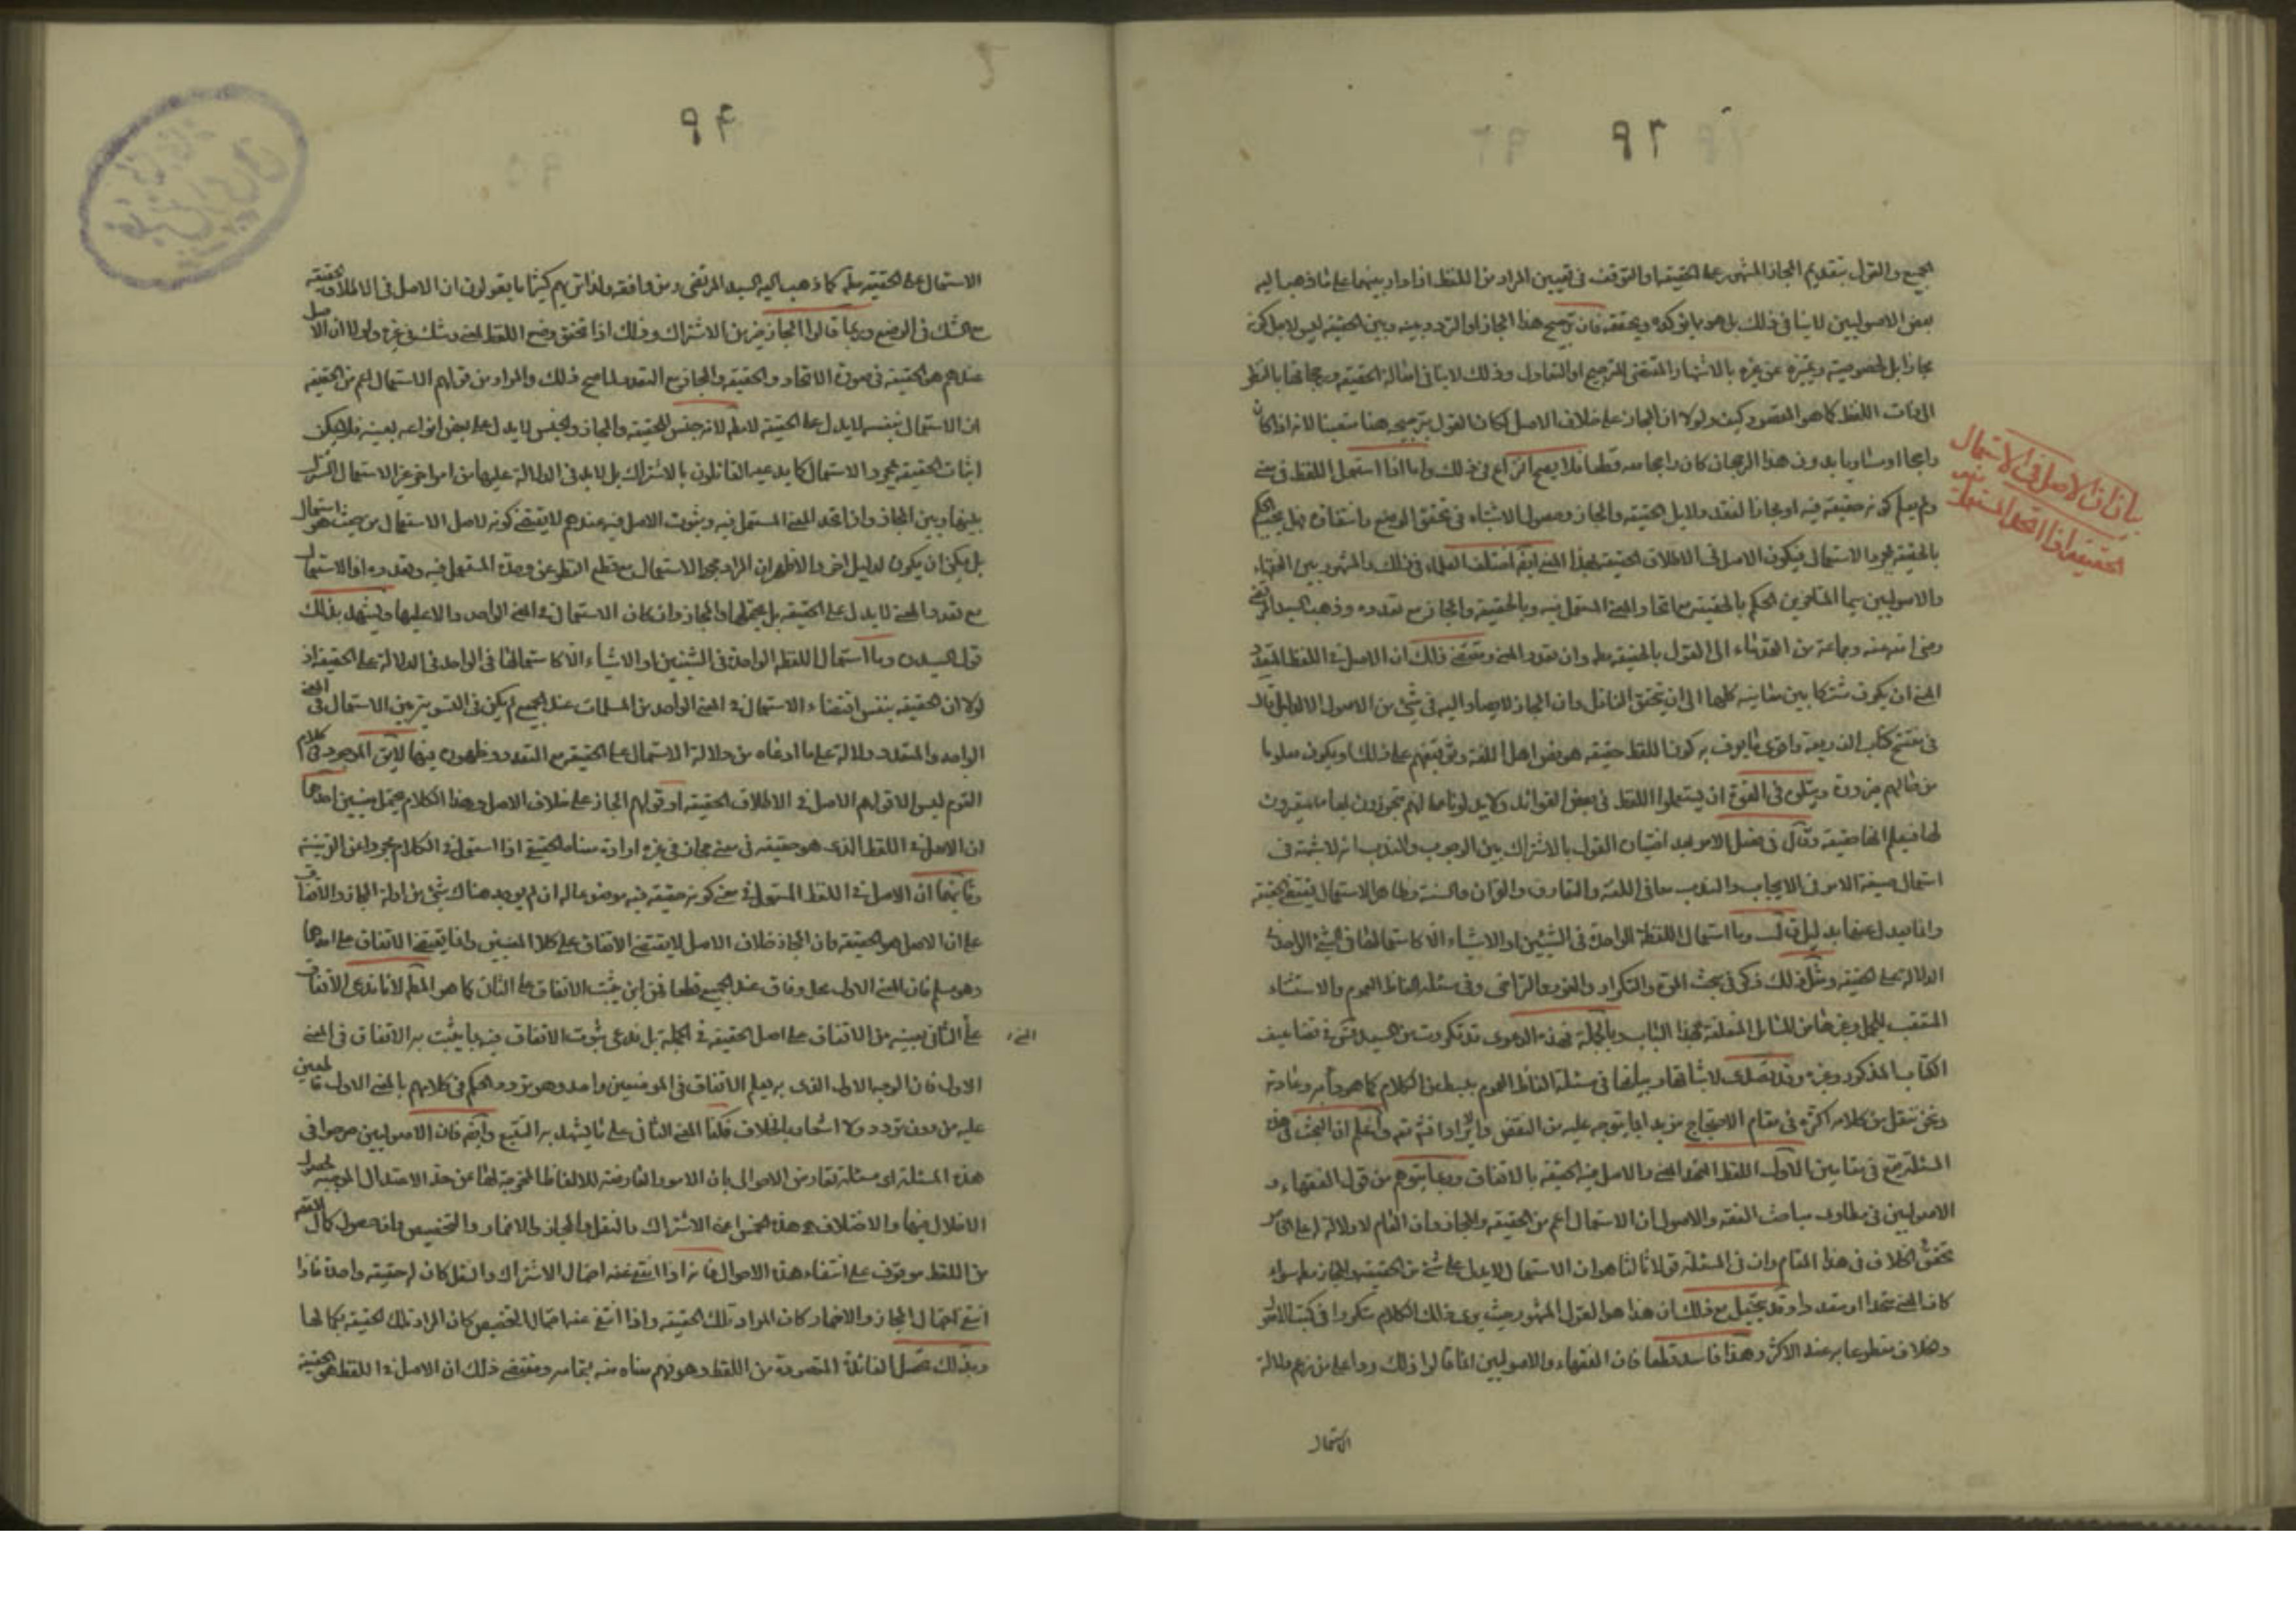 ٩٣
الجميع والقول بتقديم المجاز المشهور على الحقيقة او التوقف في تعيين المراد من اللفظ اذا دار بينهما على ما ذهب اليه
بعض الاصوليين لا ينافي ذلك بل هو مما يؤكده ويحققه فان ترجيح هذا المجاز او التردد بينه وبين الحقيقة ليس لاجل كونه
مجازا بل لخصوصية وتميزه عن غيره بالاشتهار المقتضي للترجيح او التعادل وذلك لا ينافي اصالة الحقيقة ورجحانها بالنظر
الى ذات اللفظ كما هو المقصود كيف ولولا ان المجاز على خلاف الاصل لكان القول بترجيحه هنا متعينا لانه اذا كان
راجحا او مساويا بدون هذا الرجحان كان راجحا معه قطعا فلا يصح النزاع في ذلك واما اذا استعمل اللفظ في معنى
ولم يعلم كونه حقيقة فيه او مجازا لفقد دلايل الحقيقة والمجاز وحصول الاشتباه في تحقق الوضع وانتفائه فهل يحكم
بالحقيقة لمجرد الاستعمال فيكون الاصل في الاطلاق الحقيقة بهذا المعنى ايضا اختلف العلماء في ذلك والمشهور بين الفقهاء
والاصوليين سيما المتاخرين الحكم بالحقيقة مع اتحاد المعنى المستعمل فيه وبالحقيقة والمجاز مع تعدده وذهب السيد المرتضى
رضي الله عنه وجماعة من القدماء الى القول بالحقيقة مطلقا وان تعدد المعنى ومقتضى ذلك ان الاصل في اللفظ المتعدد
المعنى ان يكون مشتركا بين معانيه كلها الى ان يتحقق الناقل وان المجاز لا يصار اليه في شيء من الاصول الا لدليل قال
في مفتتح كتاب الذريعة واقوى ما يعرف به كون اللفظ حقيقة هو نص اهل اللغة وتوقيفهم على ذلك او يكون معلوما
من حالهم ضرورة ويتلوه في القوة ان يستعملوا اللفظ في بعض الفوائد ولا يدلونا على انهم متجوزون بها مستعيرون
لها فيعلم انها حقيقة وقال في فصل الامر بعد اختيار القول بالاشتراك بين الوجوب والندب انه لا شبهة في
استعمال صيغة الامر في الايجاب والندب معا في اللغة والتعارف والقران والسنة وظاهر الاستعمال يقتضي الحقيقة
وانما يعدل عنها بدليل قال وما استعمال اللفظة الواحدة في الشيئين او الاشياء الا كاستعمالها في الشيء الواحد في
الدلالة على الحقيقة ومثل ذلك ذكر في بحث المرة والتكرار والفور والتراخي وفي مسئلة الفاظ العموم والاستثناء
المتعقب للجمل وغيرها من المسائل المتعلقة بهذا الباب وبالجملة فهذه الدعوى قد تكررت من السيد في تضاعيف
الكتاب المذكور وغيره وقد تصدى لاثباتها وبيانها في مسئلة الفاظ العموم ببسط في الكلام كما هو دأبه وعادته
ونحن ننقل من كلامه اكثره في مقام الاحتجاج مزيد اما يتوجه عليه من النقض والايراد واعلم ان البحث في هذه
المسئلة يقع في مقامين الاول اللفظ المتحد المعنى والاصل فيه الحقيقة بالاتفاق وربما يتوهم من قول الفقهاء و
الاصوليين في مطاوي مباحث الفقه والاصول ان الاستعمال اعم من الحقيقة والمجاز وان العام لا دلالة له على الخاص
تحقق الخلاف في هذا المقام وان في المسئلة قولا ثالثا هو ان الاستعمال لا يدل على شيء من الحقيقة والمجاز مطلقا سواء
كان المعنى متحدا او متعددا وقد يتخيل مع ذلك ان هذا هو القول المشهور حيث يرى ذلك الكلام متكررا في كتب الاصول
وخلافه مقطوعا به عند الاكثر وهذا فاسد قطعا فان الفقهاء والاصوليين انما قالوا ذلك ردا على من زعم دلالة
الاستعمال
بيان ان الاصل في الاستعمال
الحقيقة اذا اتحد المستعمل فيه
٩٤
الاستعمال على الحقيقة مطلقا كما ذهب اليه السيد المرتضى ومن وافقه ولذا تريهم كثيرا ما يقولون ان الاصل في الاطلاق الحقيقة
مع الشك في الوضع وربما قالوا المجاز خير من الاشتراك وذلك اذا تحقق وضع اللفظ لمعنى وشك في غيره ولولا ان الاصل
عندهم هو الحقيقة في صورة الاتحاد والحقيقة والمجاز مع التعدد لما صح ذلك والمراد من قولهم الاستعمال اعم من الحقيقة
ان الاستعمال بنفسه لا يدل على الحقيقة لانه جنس للحقيقة والمجاز والجنس لا يدل على بعض انواعه بعينه فلا يمكن
اثبات الحقيقة بمجرد الاستعمال كما يدعيه القائلون بالاشتراك بل لابد في الدلالة عليها من امر اخر غير الاستعمال المشترك
بينها وبين المجاز واذا اتحد المعنى المستعمل فيه وثبوت الاصل فيه عندهم لا يقتضي كونه لاصل الاستعمال من حيث هو استعمال
بل يمكن ان يكون لدليل اخر والاظهر ان المراد مجرد الاستعمال مع قطع النظر عن وحدة المستعمل فيه وتعدده اذ الاستعمال
مع تعدد المعنى لا يدل على الحقيقة بل يحتملها والمجاز وان كان الاستعمال في المعنى الواحد دالا عليها ويشهد بذلك
قول السيد وما استعمال اللفظة الواحدة في الشيئين او الاشياء الا كاستعمالها في الواحد في الدلالة على الحقيقة اذ
لولا ان الحقيقة بنفس اقتضاء الاستعمال في المعنى الواحد من المسلمات عند الجميع لم يكن في التسوية بين الاستعمال في المعنى
الواحد والمتعدد دلالة على ما ادعاه من دلالة الاستعمال على الحقيقة مع التعدد وظهوره فيها لا يقال الموجود في كلام
القوم ليس الا قولهم الاصل في الاطلاق الحقيقة او قولهم المجاز على خلاف الاصل وهذا الكلام يحتمل معنيين احدهما
ان الاصل في اللفظ الذي هو حقيقة في معنى مجاز في غيره ارادة معناه الحقيقي اذا استعمل في الكلام مجردا عن القرينة
وثانيهما ان الاصل في اللفظ المستعمل في معنى كونه حقيقة فيه موضوعا له ان لم يوجد هناك شيء من ادلة المجاز والاتفاق
على ان الاصل هو الحقيقة وان المجاز خلاف الاصل لا يقتضي الاتفاق على كلا المعنيين وانما يقتضي الاتفاق على احدهما
وهو مسلم فان المعنى الاول محل وفاق عند الجميع قطعا فمن اين يثبت الاتفاق على الثاني كما هو المط لانا ندعي الاتفاق
على الثاني بعينه من الاتفاق على اصل الحقيقة في الجملة بل ندعي ثبوت الاتفاق فيه بما يثبت به الاتفاق في المعنى
الاول فان الوجه الاول الذي به يعلم الاتفاق في الموضعين واحد وهو تردد الحكم في كلامهم بالمعنى الاول قاطعين
عليه من دون تردد ولا اشعار بالخلاف فكذا المعنى الثاني على ما يشهد به التتبع وايضا فان الاصوليين صرحوا في
هذه المسئلة اي مسئلة تعارض الاحوال بان الامور العارضة للالفاظ المخرجة لها عن حد الاعتدال الموجبة لحصول
الاخلال فيها والاختلاف هذه الخمس اعني الاشتراك والنقل والمجاز والاضمار والتخصيص وان حصول كمال التفهم
من اللفظ موقوف على انتفاء هذه الاحوال فانه اذا انتفى عنه احتمال الاشتراك والنقل كان له حقيقة واحدة فاذا
انتفى احتمال المجاز والاضمار كان المراد تلك الحقيقة واذا انتفى عنه احتمال التخصيص كان المراد تلك الحقيقة بكمالها
وبذلك تحصل الفائدة المقصودة من اللفظ وهو فهم معناه منه بتمامه ومقتضى ذلك ان الاصل في اللفظ هو الحقيقة